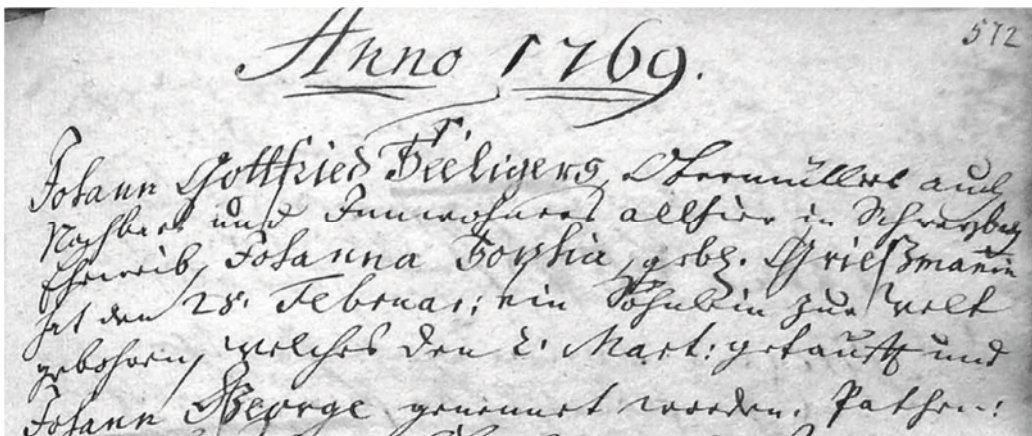 572
Anno 1769.
1.
Johann Gottfried Seeligers, Obermüllers auch
Nachbars und Innwohners allhier in Schwarzbach
Eheweib, Johanna Sophia, gebh. Grießmannin
hat den 28. Februar: ein Söhnlein zur Welt
gebohren, welches den 2. Mart: getaufft und
Johann George genennet worden. Pathen: